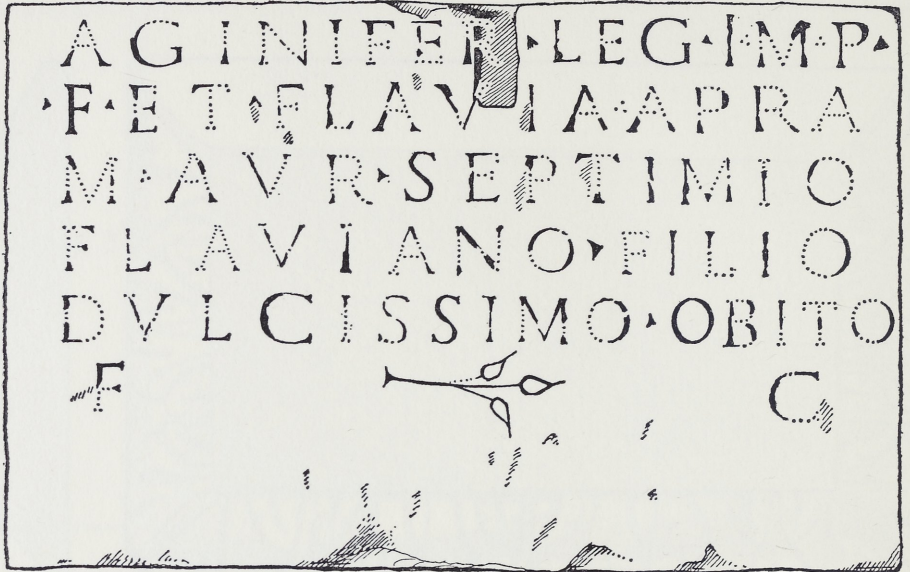 AGINIFER · LEG · I · M · P ·
· F · E T · FLAVIA · APRA
M · AVR · SEPTIMIO
FLAVIANO · FILIO
DVLCISSIMO · OBITO
F C